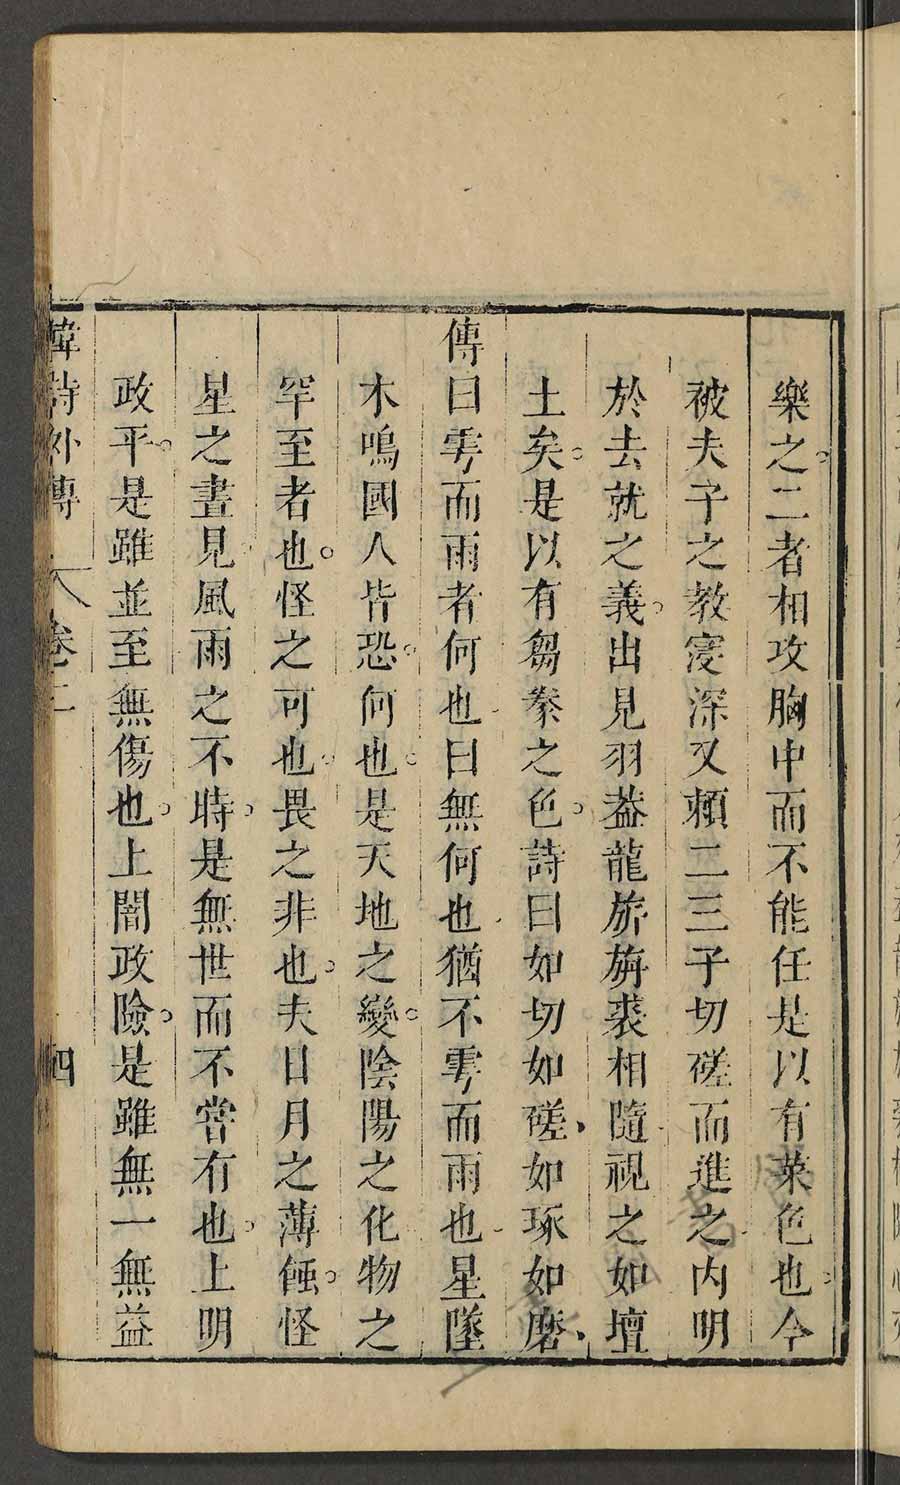 樂之二者相攻胸中而不能任是以有菜色也今
被夫子之教寖深又賴二三子切磋而進之內明
於去就之義出見羽葢龍旂旃裘相隨視之如壇
土矣是以有芻豢之色詩曰如切如磋如琢如磨
傳曰雩而雨者何也曰無何也猶不雩而雨也星墜
木鳴國人皆恐何也是天地之變陰陽之化物之
罕至者也怪之可也畏之非也夫日月之薄蝕怪
星之晝見風雨之不時是無世而不嘗有也上明
政平是雖並至無傷也上闇政險是雖無一無益
韓詩外傳 卷二 四